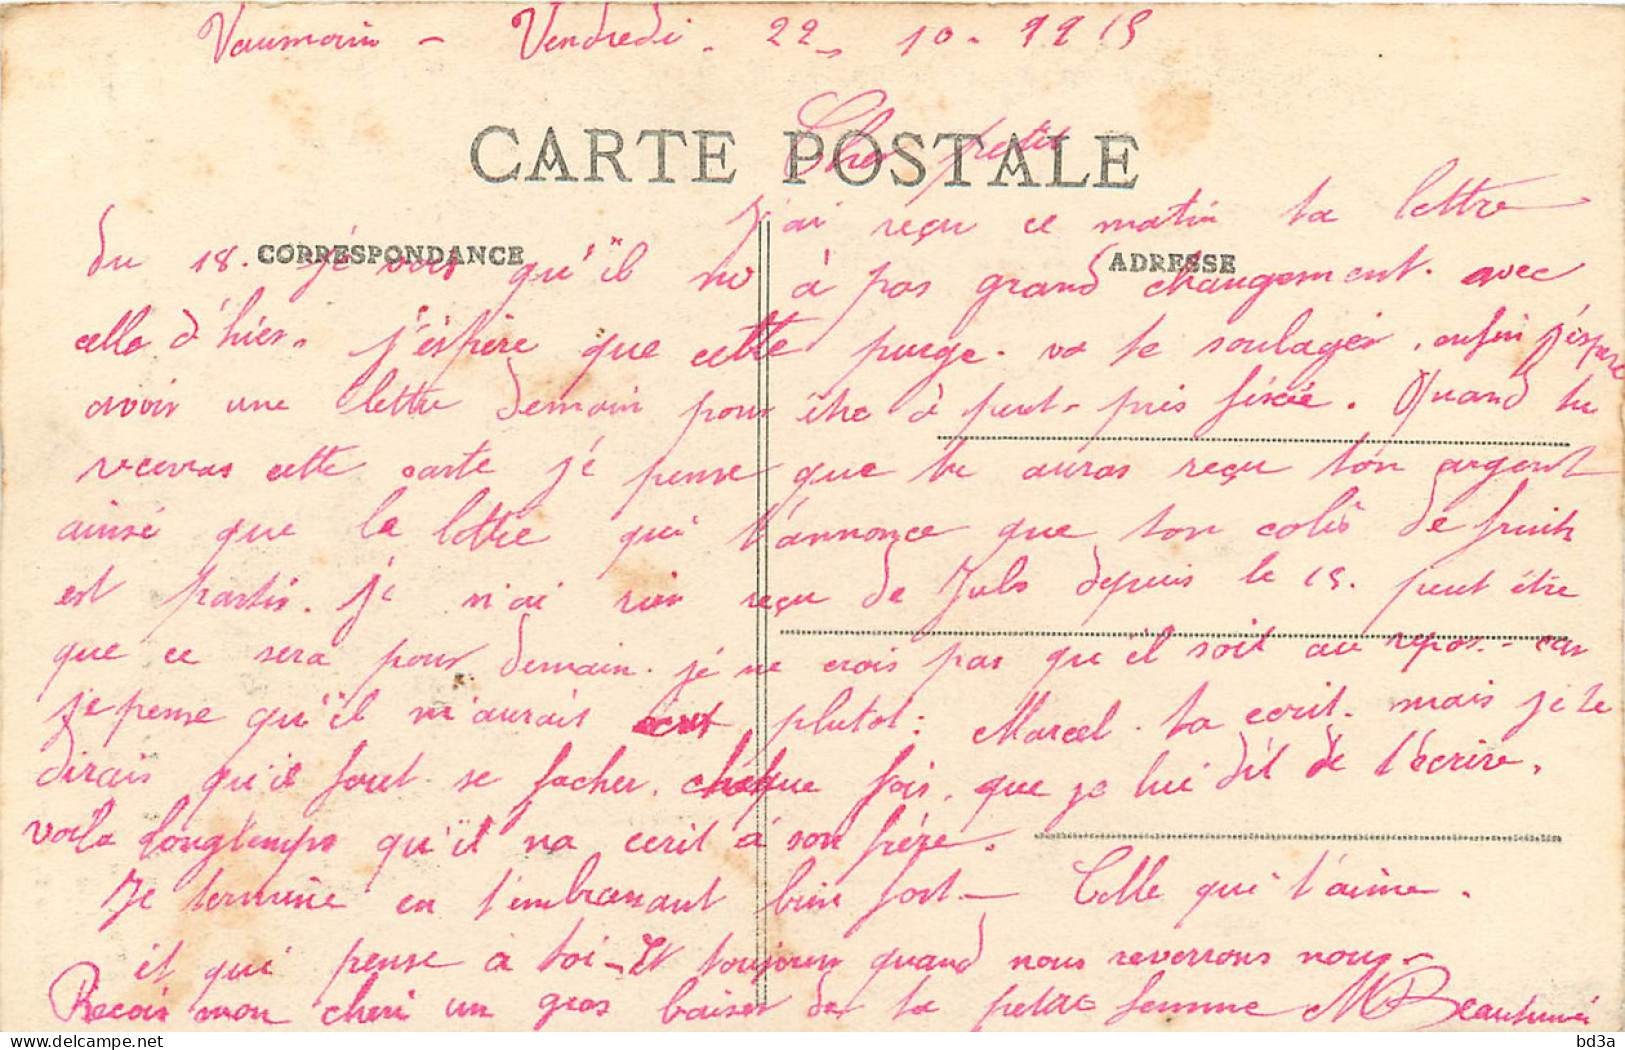 Vaumoin - Vendredi. 22. 10. 1915
CARTE POSTALE
Cher petit
J'ai reçu ce matin ta lettre
CORRESPONDANCE
ADRESSE
du 18. je vois qu'il ny à pas grand changement. avec
celle d'hier. j'éspère que cette purge. va te soulager, enfin j'éspère
avoir une lettre demain pour être à peut-près fixée. Quand tu
recevras cette carte jé pense que tu auras reçu ton argent
ainsé que la lettre qui t'annonce que ton colis de fruits
est partis. Je n'ai rien reçu de Juls depuis le 15. peut être
que ce sera pour demain. jé ne crois pas qu'il soit au repos. - car
je pense qu'il m'aurait ecrit plutot: Marcel. ta ecrit. mais je te
dirais qu'il faut se facher. cheque fois, que je lui dit de t'écrire.
voila longtemps qu'il na ecrit à son frère.
Je termine en t'embrassant bien fort - Celle qui t'aime.
et qui pense à toi - Et toujours quand nous reverrons nous -
Recois mon cheri un gros baiser de ta petite femme M
bd3a